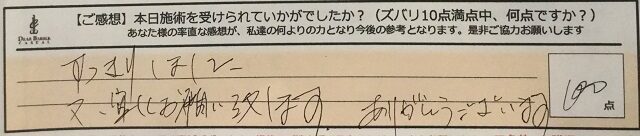 DEAR BARBER
【ご感想】本日施術を受けられていかがでしたか？（ズバリ10点満点中、何点ですか？）
あなた様の率直な感想が、私達の何よりの力となり今後の参考となります。是非ご協力お願いします
すっきりしました
又、宜しくお願い致します。ありがとうございます
100
点